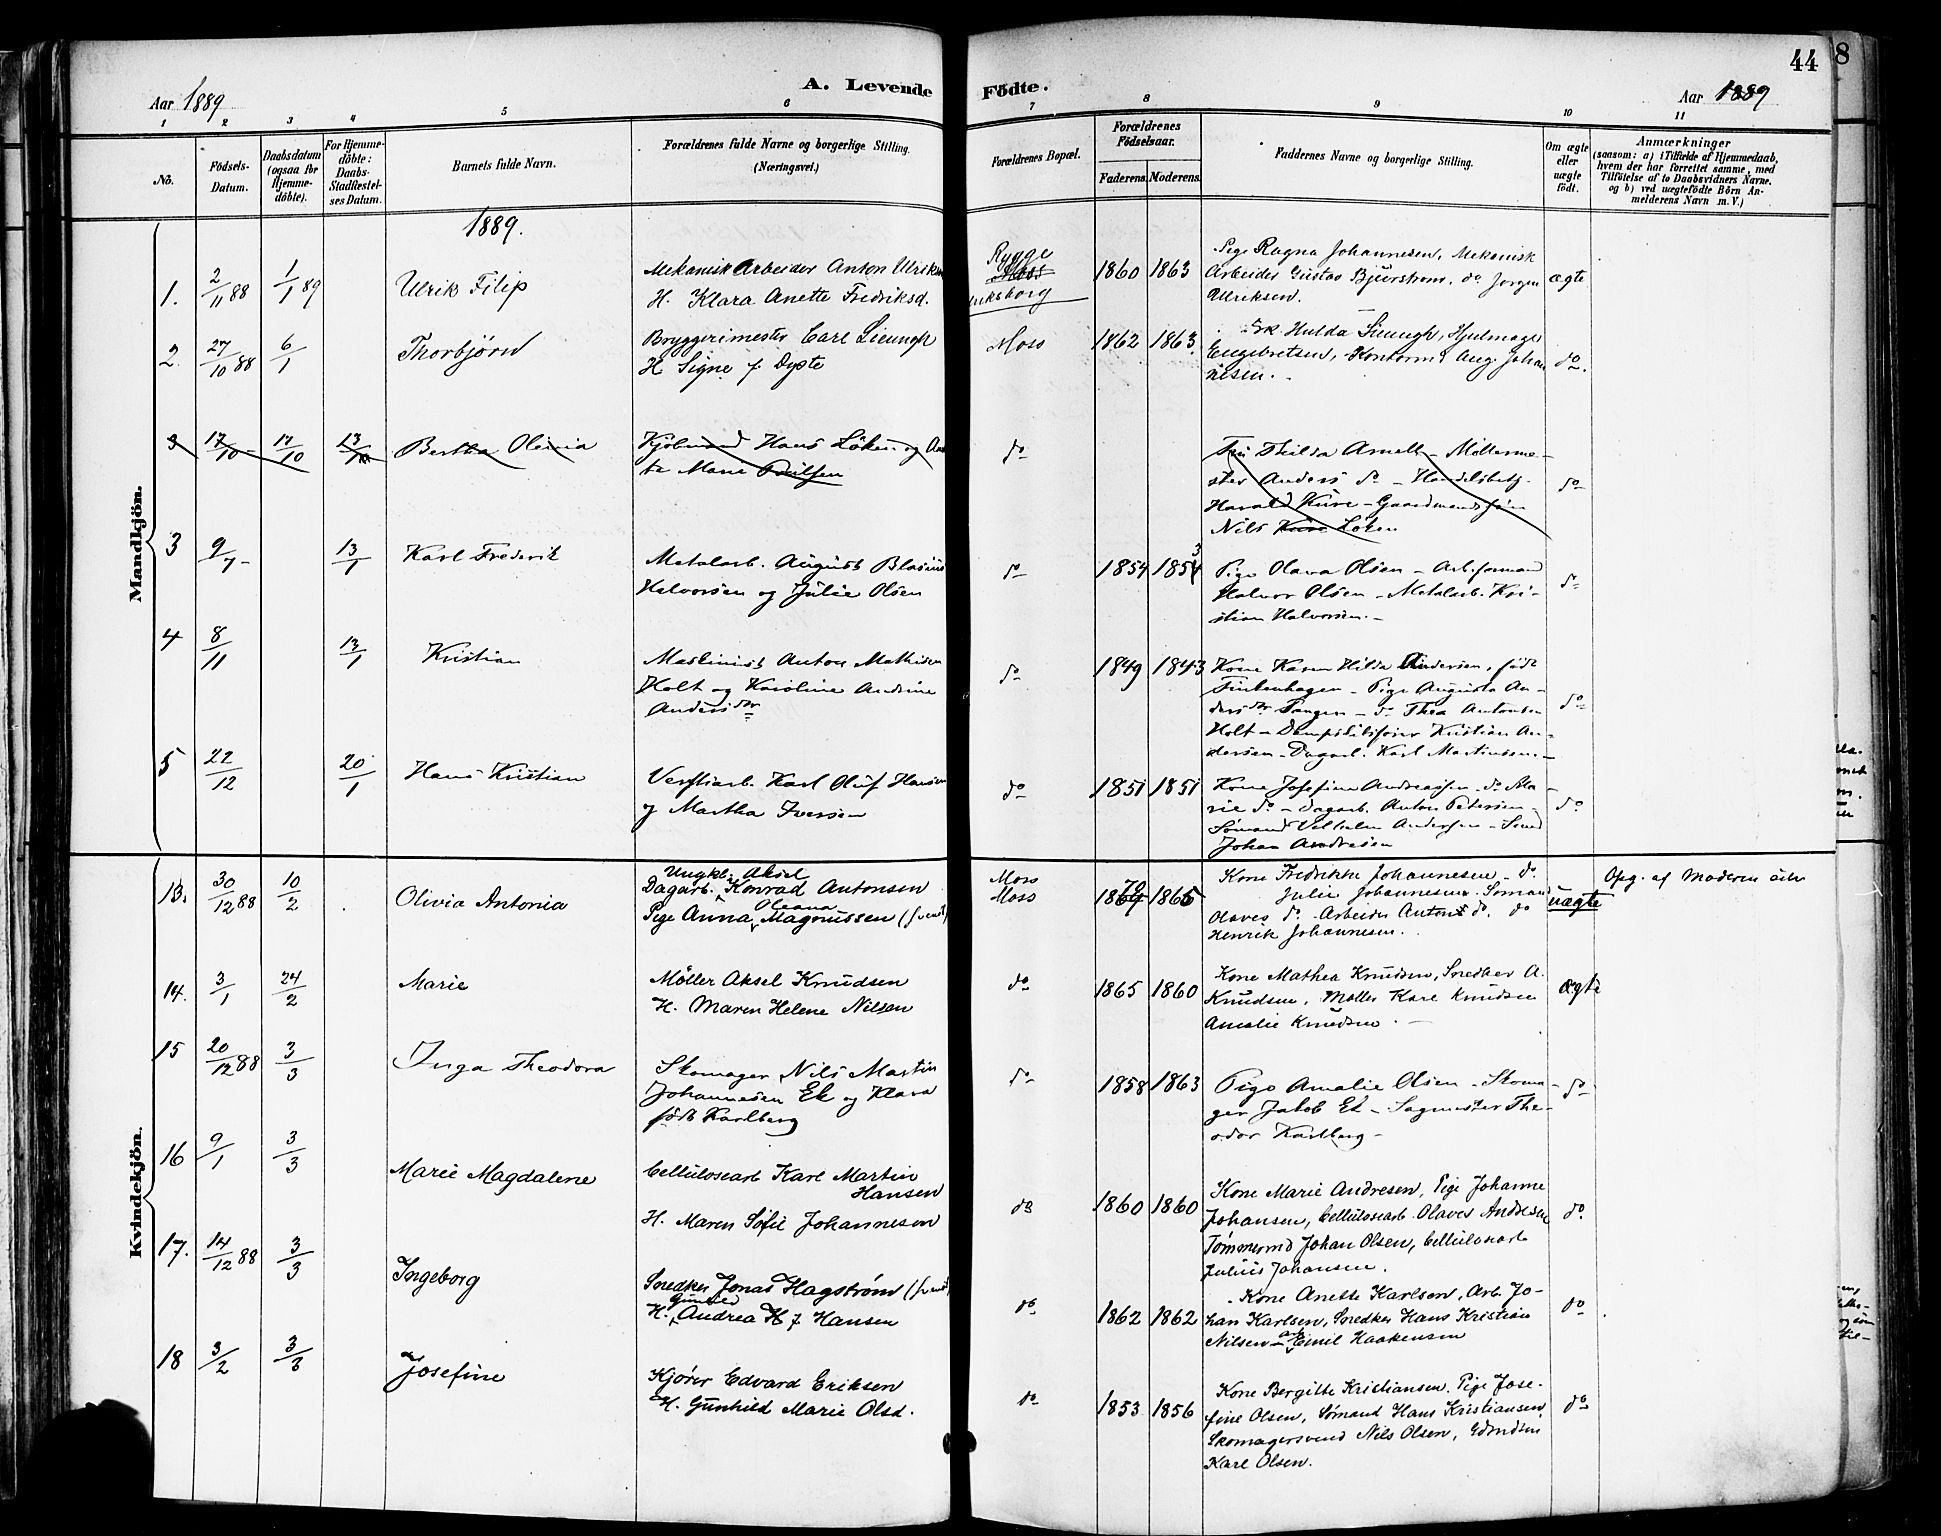 A. Levende Fødte.
44
8
Aar 1889
Aar 1889
1 2 3 4 5 6 7 8 9 10 11
No.
Fødsels-
Datum.
Daabsdatum
(ogsaa for
Hjemme-
døbte).
For Hjemme-
døbte:
Daabs-
Stadfæstel-
ses Datum.
Barnets fulde Navn.
Forældrenes fulde Navne og borgerlige Stilling.
(Næringsvei.)
Forældrenes Bopæl.
Forældrenes
Fødselsaar.
Faderens. Moderens.
Faddernes Navne og borgerlige Stilling.
Om ægte
eller
uægte
født.
Anmærkninger
(saasom: a) i Tilfælde af Hjemmedaab,
hvem der har forrettet samme, med
Tilføielse af to Daabsvidners Navne,
og b) ved uægtefødte Børn An-
melderens Navn m. V.)
Mandkjön.
1889.
1. 2/11 88 1/1 89 Ulrik Filip
Mekanisk Arbeider Anton Ulriksen
H. Klara Anette Fredriksd.
Rygge
Moss
1860 1863
Pige Ragna Johannesen, Mekanisk
Arbeider Gustav Bjurstrøm, do Jørgen
Ulriksen.
ægte
2. 27/10 88 6/1 Thorbjørn
Bryggerimester Carl Lieungh
H Signe f. Dyste
Moss 1862 1863
Frk. Hulda Lieungh, Hjulmager
Engebretsen, Kontorm. Aug. Johan
nesen.
do.
3 17/10 17/10 13/10 Bertha Olivia
Kjøbmand Hans Løken og
Marie
do
Frk Thilda Arnell - Møllerme-
ster Anders do - Handelsbetj.
Harald Kure - Gaardmandssøn
Nils Kure Løken
do
3 9/7 13/1 Karl Frederik
Metalarb. August Blasius
Halvorsen og Julie Olsen
do 1854 1854 3
Pige Olava Olsen - Arb.formand
Halvor Olsen - Metalarb. Kri-
stian Halvorsen.
do
4 8/11 13/1 Kristian
Maskinist Anton Mathisen
Holt og Karoline Andrine
Andersdtr
do 1849 1843
Kone Karen Hilda Andersen, født
Finkenhagen - Pige Augusta An-
dersdtr Tangen - do Thea Antonsen
Holt - Dampskibsfører Kristian An-
dersen - Dagarb. Karl Martinsen.
do
5 22/12 20/1 Hans Kristian
Verftsarb. Karl Oluf Hansen
og Martha Iversen
do 1851 1851
Kone Josefine Andreassen do Ma-
rie do - Dagarb. Anton Petersen -
Sømand Vilhelm Andersen - Smed
Johan Andresen
do
Kvindekjön.
13. 30/12 88 10/2 Olivia Antonia
Ungkl. Aksel
Dagarb. Konrad Antonsen
Oleana
Pige Anna Magnussen
Moss
Moss
70
1867 1865
Kone Fredrikke Johannesen - do
Julie Johannesen. Sømand
Olaves do. Arbeider Anton do. do
Henrik Johannesen.
uægte
Opg. af Moderen
14. 3/1 24/2 Marie
Møller Aksel Knudsen
H. Maren Helene Nilsen
do 1865 1860
Kone Mathea Knudsen, Snedker A.
Knudsen, Møller Karl Knudsen
Amalie Knudsen.
ægte
15 20/12 88 3/3 Inga Theodora
Skomager Nils Martin
Johannesen Ek og Klara
født Karlberg
do 1858 1863
Pige Amalie Olsen - Skoma-
ger Jakob Ek - Sagmester The-
odor Karlberg -
do
16 9/1 3/3 Marie Magdalene
Cellulosearb Karl Martin
Hansen
H. Maren Sofie Johannesen
do 1860 1860
Kone Marie Andresen, Pige Johanne
Johansen, Cellulosearb. Olaves Andresen
Tømmermd Johan Olsen, Cellulosearb
Julius Johansen.
do.
17. 14/12 88 3/3 Ingeborg
Snedker Jonas Hagstrøm
Gunhild
H. Andrea H f Hansen
do 1862 1862
Kone Anette Karlsen, Arb. Jo-
han Karlsen, Snedker Hans Kristian
Nilsen - arb Emil Haakensen
do
18 3/2 3/3 Josefine
Kjører Edvard Eriksen
H. Gunhild Marie Olsd.
do 1853 1856
Kone Bergitte Kristiansen. Pige Jose-
fine Olsen, Sømand Hans Kristiansen,
Skomagersvend Nils Olsen,
Karl Olsen.
do